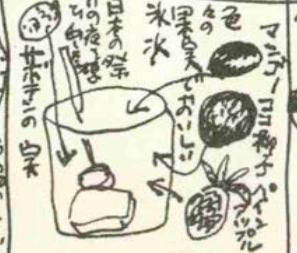 マンゴー
ココ椰子
パインアップル
色々の果実でおいしい
氷水
日本の祭
の夜を想
ひ出
サボテンの実